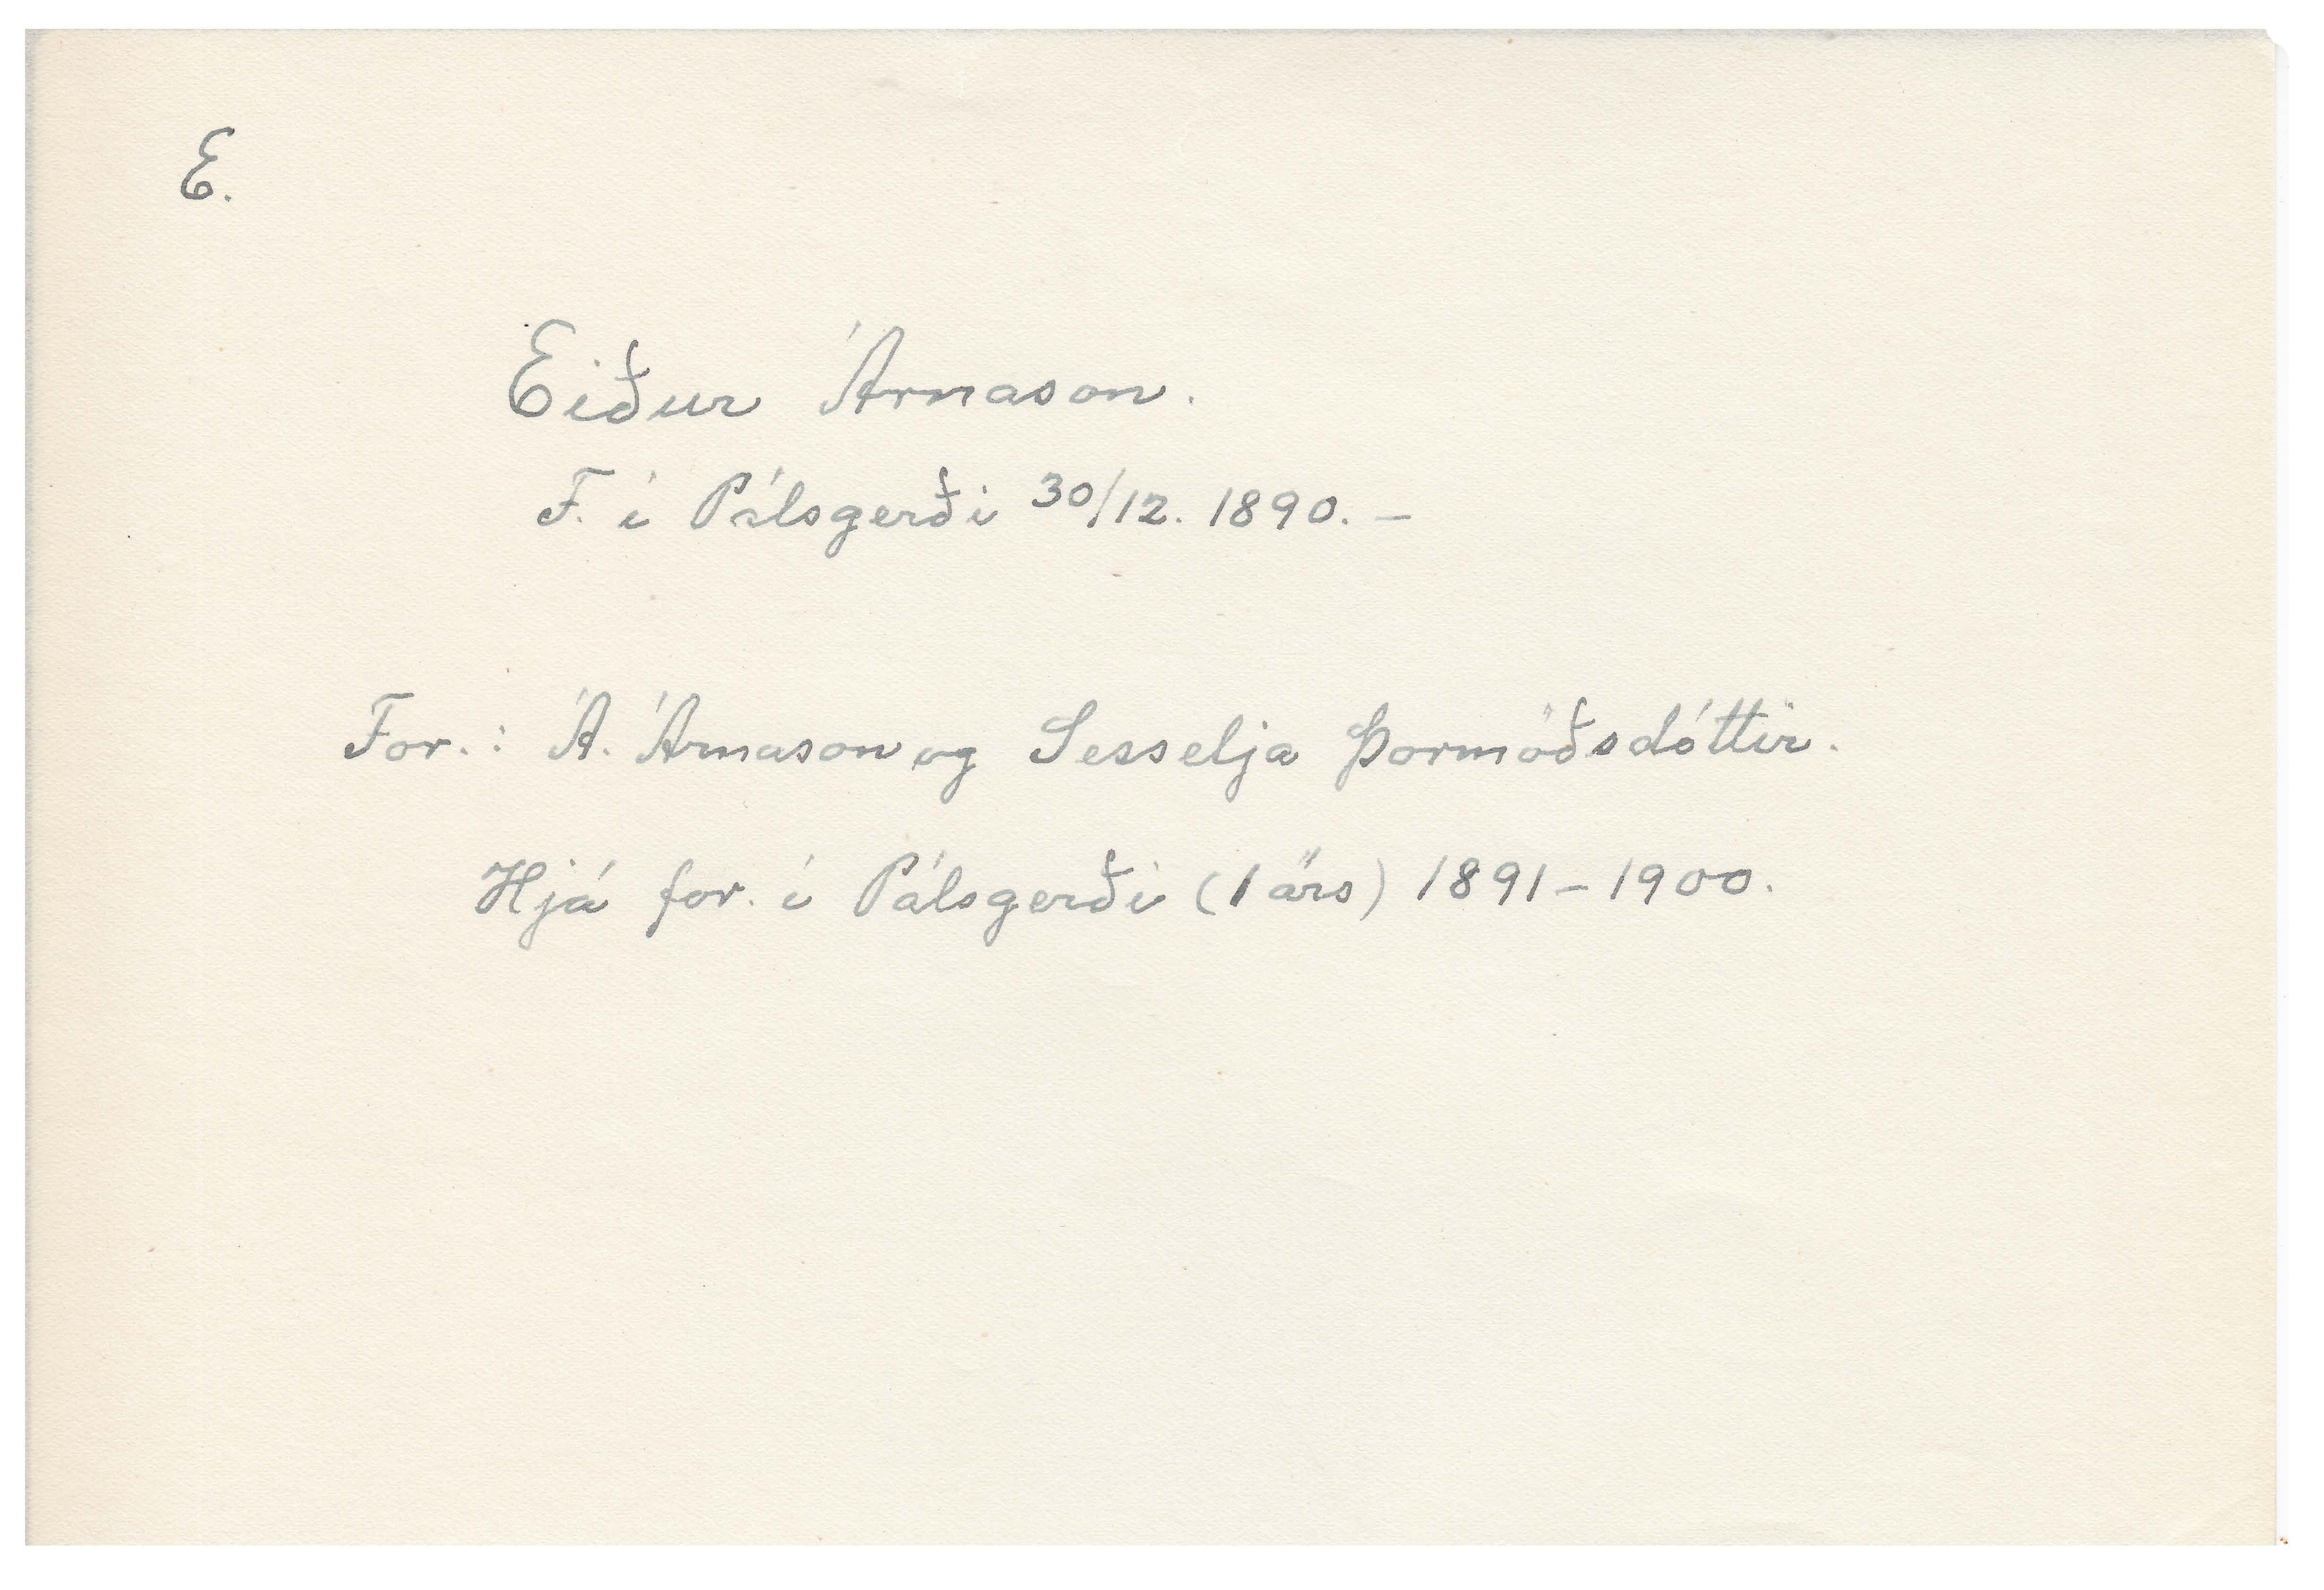 E.
Eiður Árnason.
F. í Pálsgerði 30/12. 1890. –
For.: Á. Árnason og Sesselja Þormóðsdóttir.
Hjá for. í Pálsgerði (1 árs) 1891 – 1900.